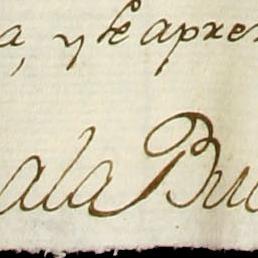 a, y le apre
ala Bu